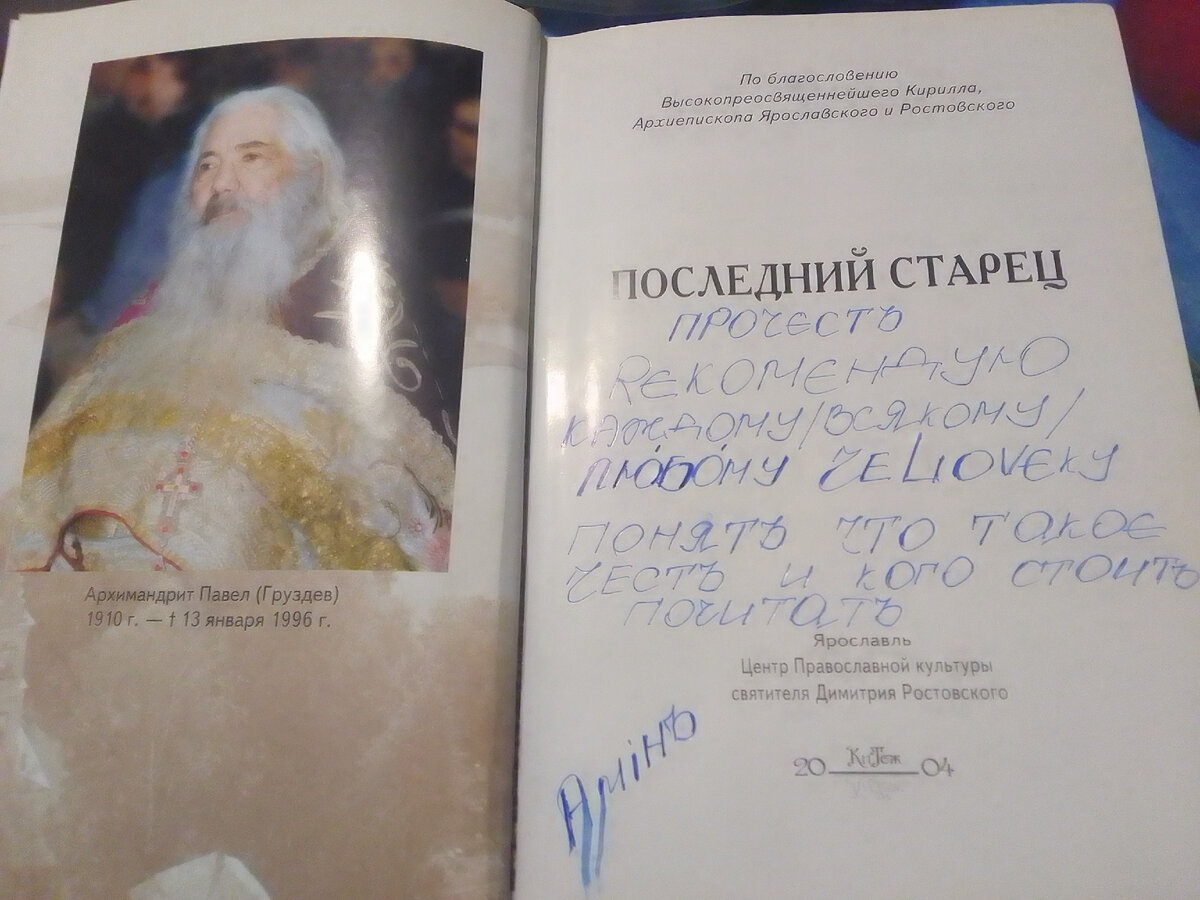 Архимандрит Павел (Груздев)
1910 г. — † 13 января 1996 г.
По благословению
Высокопреосвященнейшего Кирилла,
Архиепископа Ярославского и Ростовского
ПОСЛЕДНИЙ СТАРЕЦ
ПРОЧЕСТЬ
RЕКОМЕНДУЮ
КАЖДОМУ/ВСЯКОМУ/
ЛЮБОМУ ЧЕLIOVЕКУ
ПОНЯТЬ ЧТО ТАКОЕ
ЧЕСТЬ И КОГО СТОИТЬ
ПОЧИТАТЬ
Ярославль
Центр Православной культуры
святителя Димитрия Ростовского
Аминь
20 Китеж 04